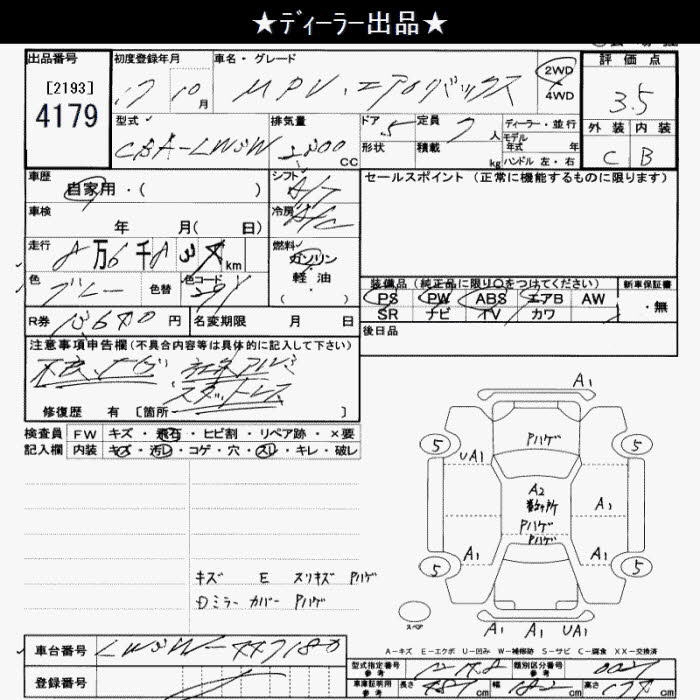 ★ディーラー出品★
出品番号 初度登録年月 車名・グレード 評価点
[2193]
4179
17 10月 MPV・エアロリミックス 2WD 3.5
4WD
型式 排気量 ドア 5 定員 7人 ディーラー・並行 外装 内装
CBA-LW3W 2300 CC 形状 積載 kg モデル年式 年 C B
ハンドル 左・右
車歴 シフト A/T セールスポイント (正常に機能するものに限ります)
自家用・( )
車検 冷房 A/C
年 月( 日)
走行 8万6千 km 燃料 ガソリン
軽油
( )
色 グレー 色替 色コード 装備品(純正品に限り○をつけてください) 新車保証書
PS PW ABS エアB AW ・無
SR ナビ TV カワ
R券 円 名変期限 月 日 後日品
注意事項申告欄(不具合内容等は具体的に記入して下さい)
不良ナビ 社外アルミ
スタットレス
修復歴 有 [箇所 ]
検査員 FW キズ・飛石・ヒビ割・リペア跡・×要
記入欄 内装 キズ・汚レ・コゲ・穴・スリ・キレ・破レ
A1
Pハゲ
5 5
UA1
A2
数ヶ所 A1
Pハゲ
Pハゲ
A1 A1
5 5
キズ E スリキズ Pハゲ
Dミラー カバー Pハゲ
スペア
A1 A1 UA1
A-キズ E-エクボ U-凹み W-補修跡 S-サビ C-腐食 XX-交換済
車台番号 LW3W- 型式指定番号 参考 類別区分番号 参考
登録番号 車庫証明用 参考 長さ cm 幅 cm 高さ cm